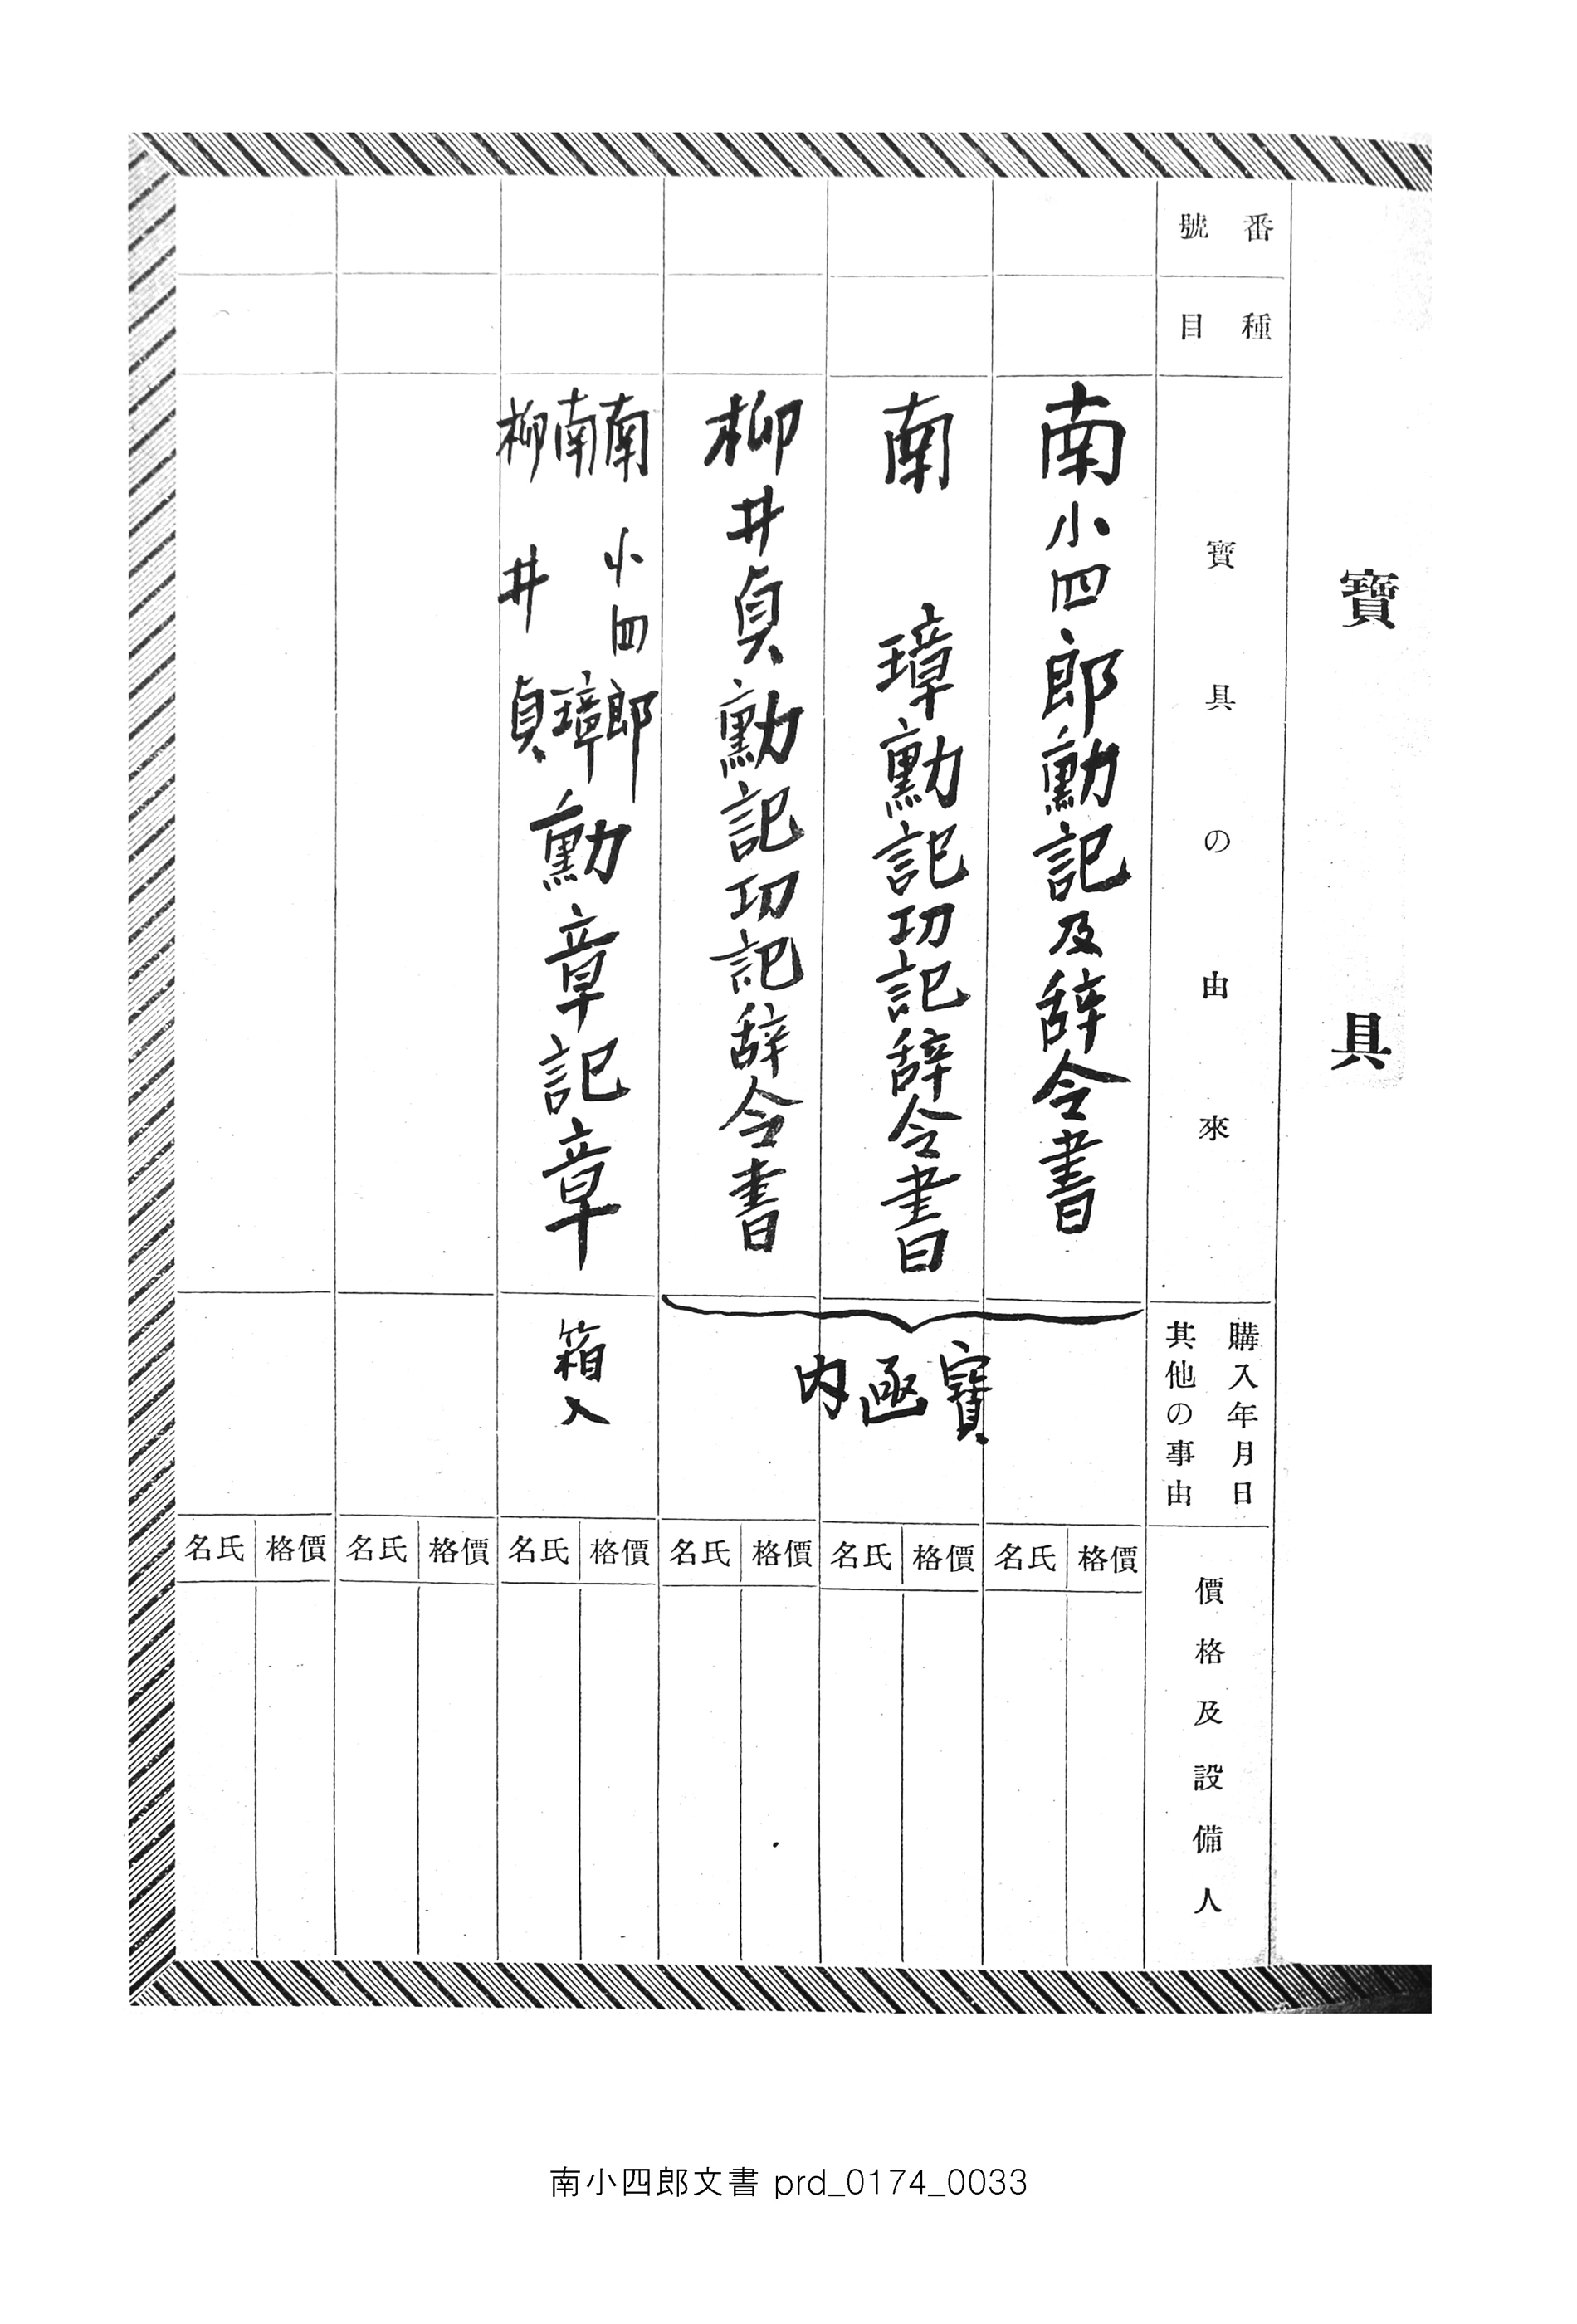 寶具
番號
種目
寶具の由來
購入年月日
其他の事由
價格及設備人
南小四郎勳記及辞令書
價格
氏名
南 璋勳記功記辞令書
價格
氏名
柳井貞勳記功記辞令書
價格
氏名
寶函内
南小四郎
南 璋
柳井貞
勳章記章
箱入
價格
氏名
價格
氏名
價格
氏名
南小四郎文書 prd_0174_0033